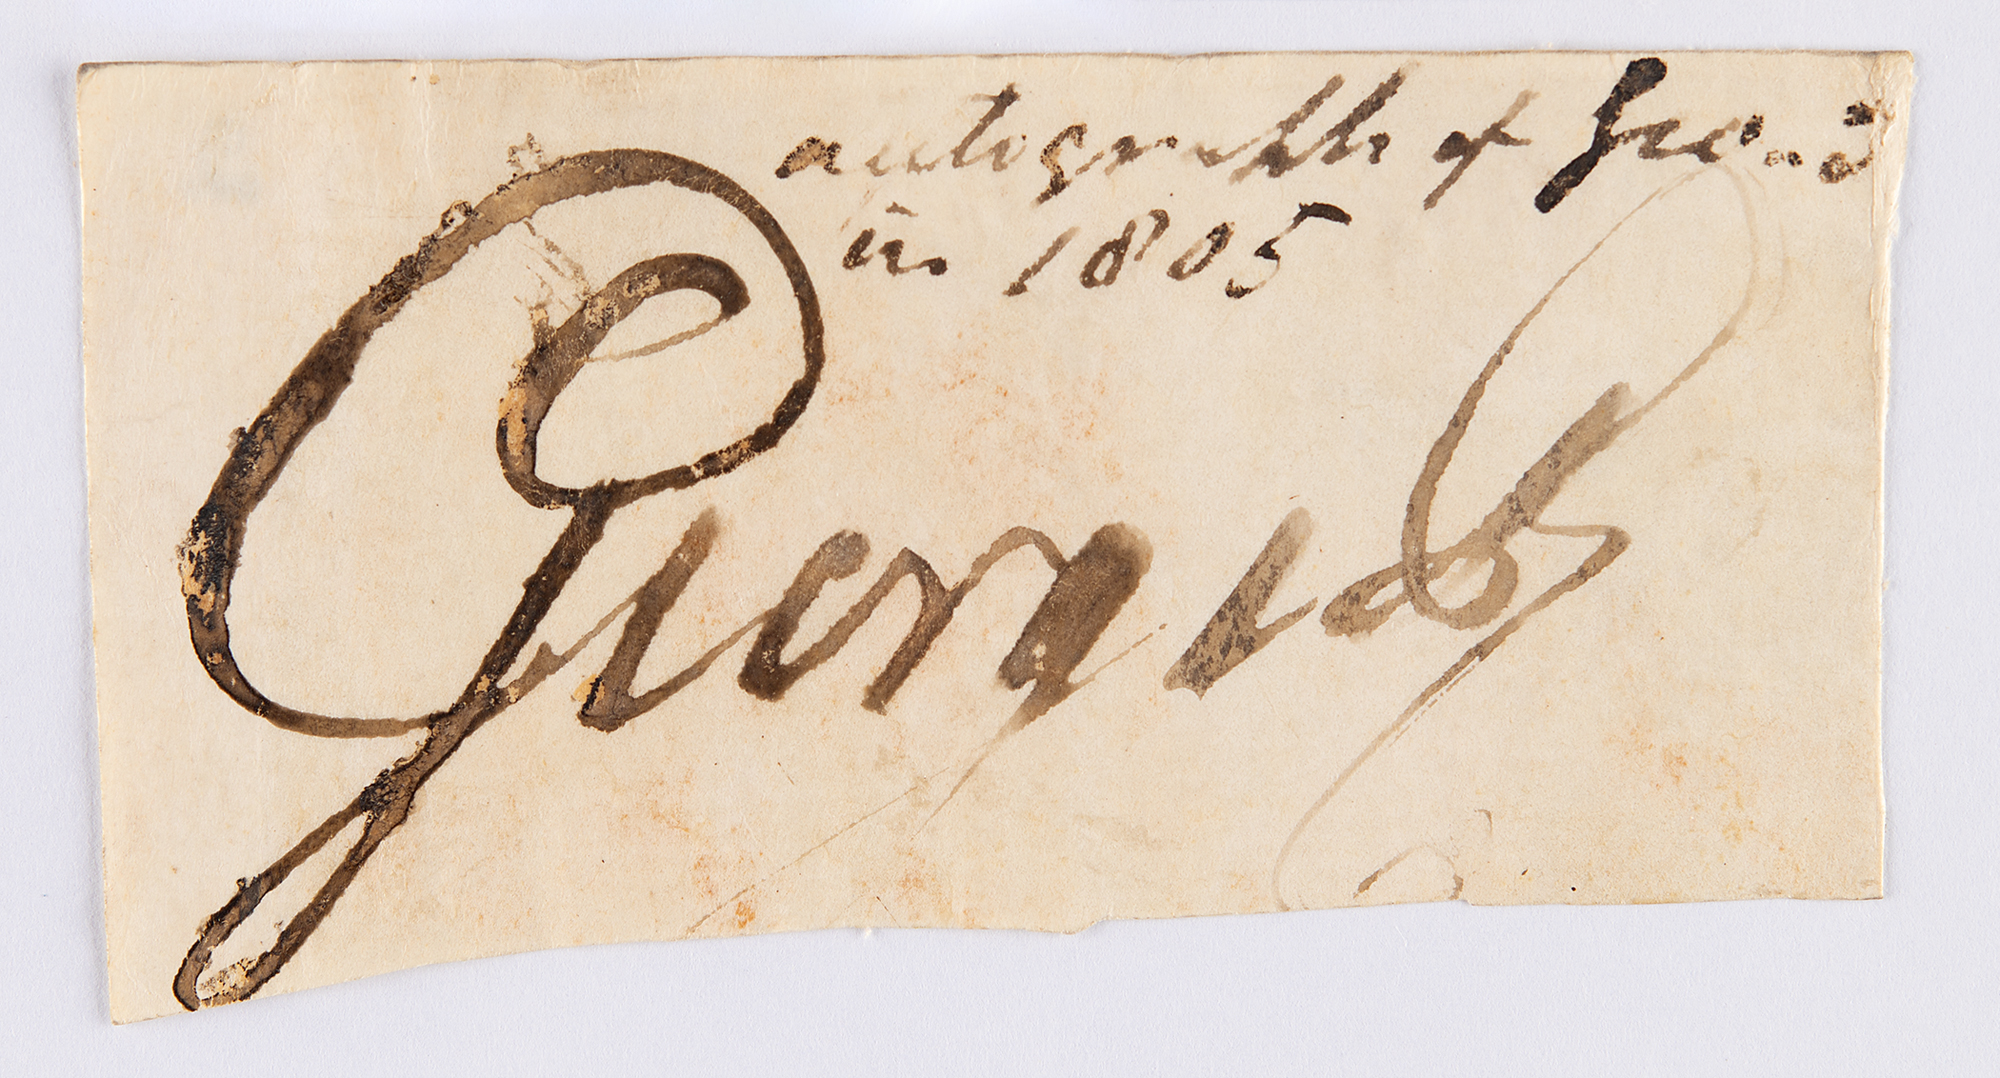 autograph of Geo. 3
in 1805
George R